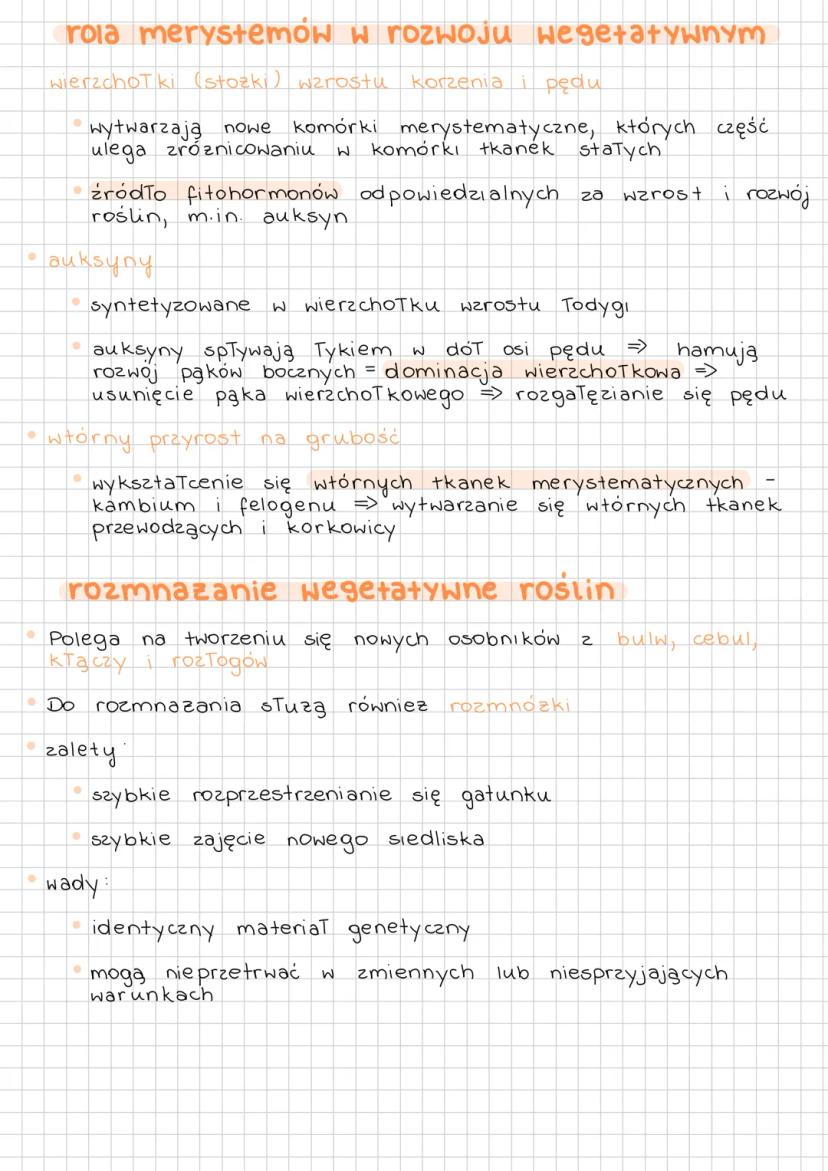 rola merystemów w rozwoju wegetatywnym
wierzchołki (stożki) wzrostu korzenia i pędu
• wytwarzają nowe komórki merystematyczne, których część
ulega zróżnicowaniu w komórki tkanek stałych
• źródło fitohormonów odpowiedzialnych za wzrost i rozwój
roślin, m.in. auksyn
• auksyny
• syntetyzowane w wierzchołku wzrostu łodygi
• auksyny spływają łykiem w dół osi pędu => hamują
rozwój pąków bocznych = dominacja wierzchołkowa =>
usunięcie pąka wierzchołkowego => rozgałęzianie się pędu
• wtórny przyrost na grubość
• wykształcenie się wtórnych tkanek merystematycznych -
kambium i felogenu => wytwarzanie się wtórnych tkanek
przewodzących i korkowicy
rozmnażanie wegetatywne roślin
• Polega na tworzeniu się nowych osobników z bulw, cebul,
kłączy i rozłogów
• Do rozmnażania służą również rozmnóżki
• zalety:
• szybkie rozprzestrzenianie się gatunku
• szybkie zajęcie nowego siedliska
• wady:
• identyczny materiał genetyczny
• mogą nie przetrwać w zmiennych lub niesprzyjających
warunkach